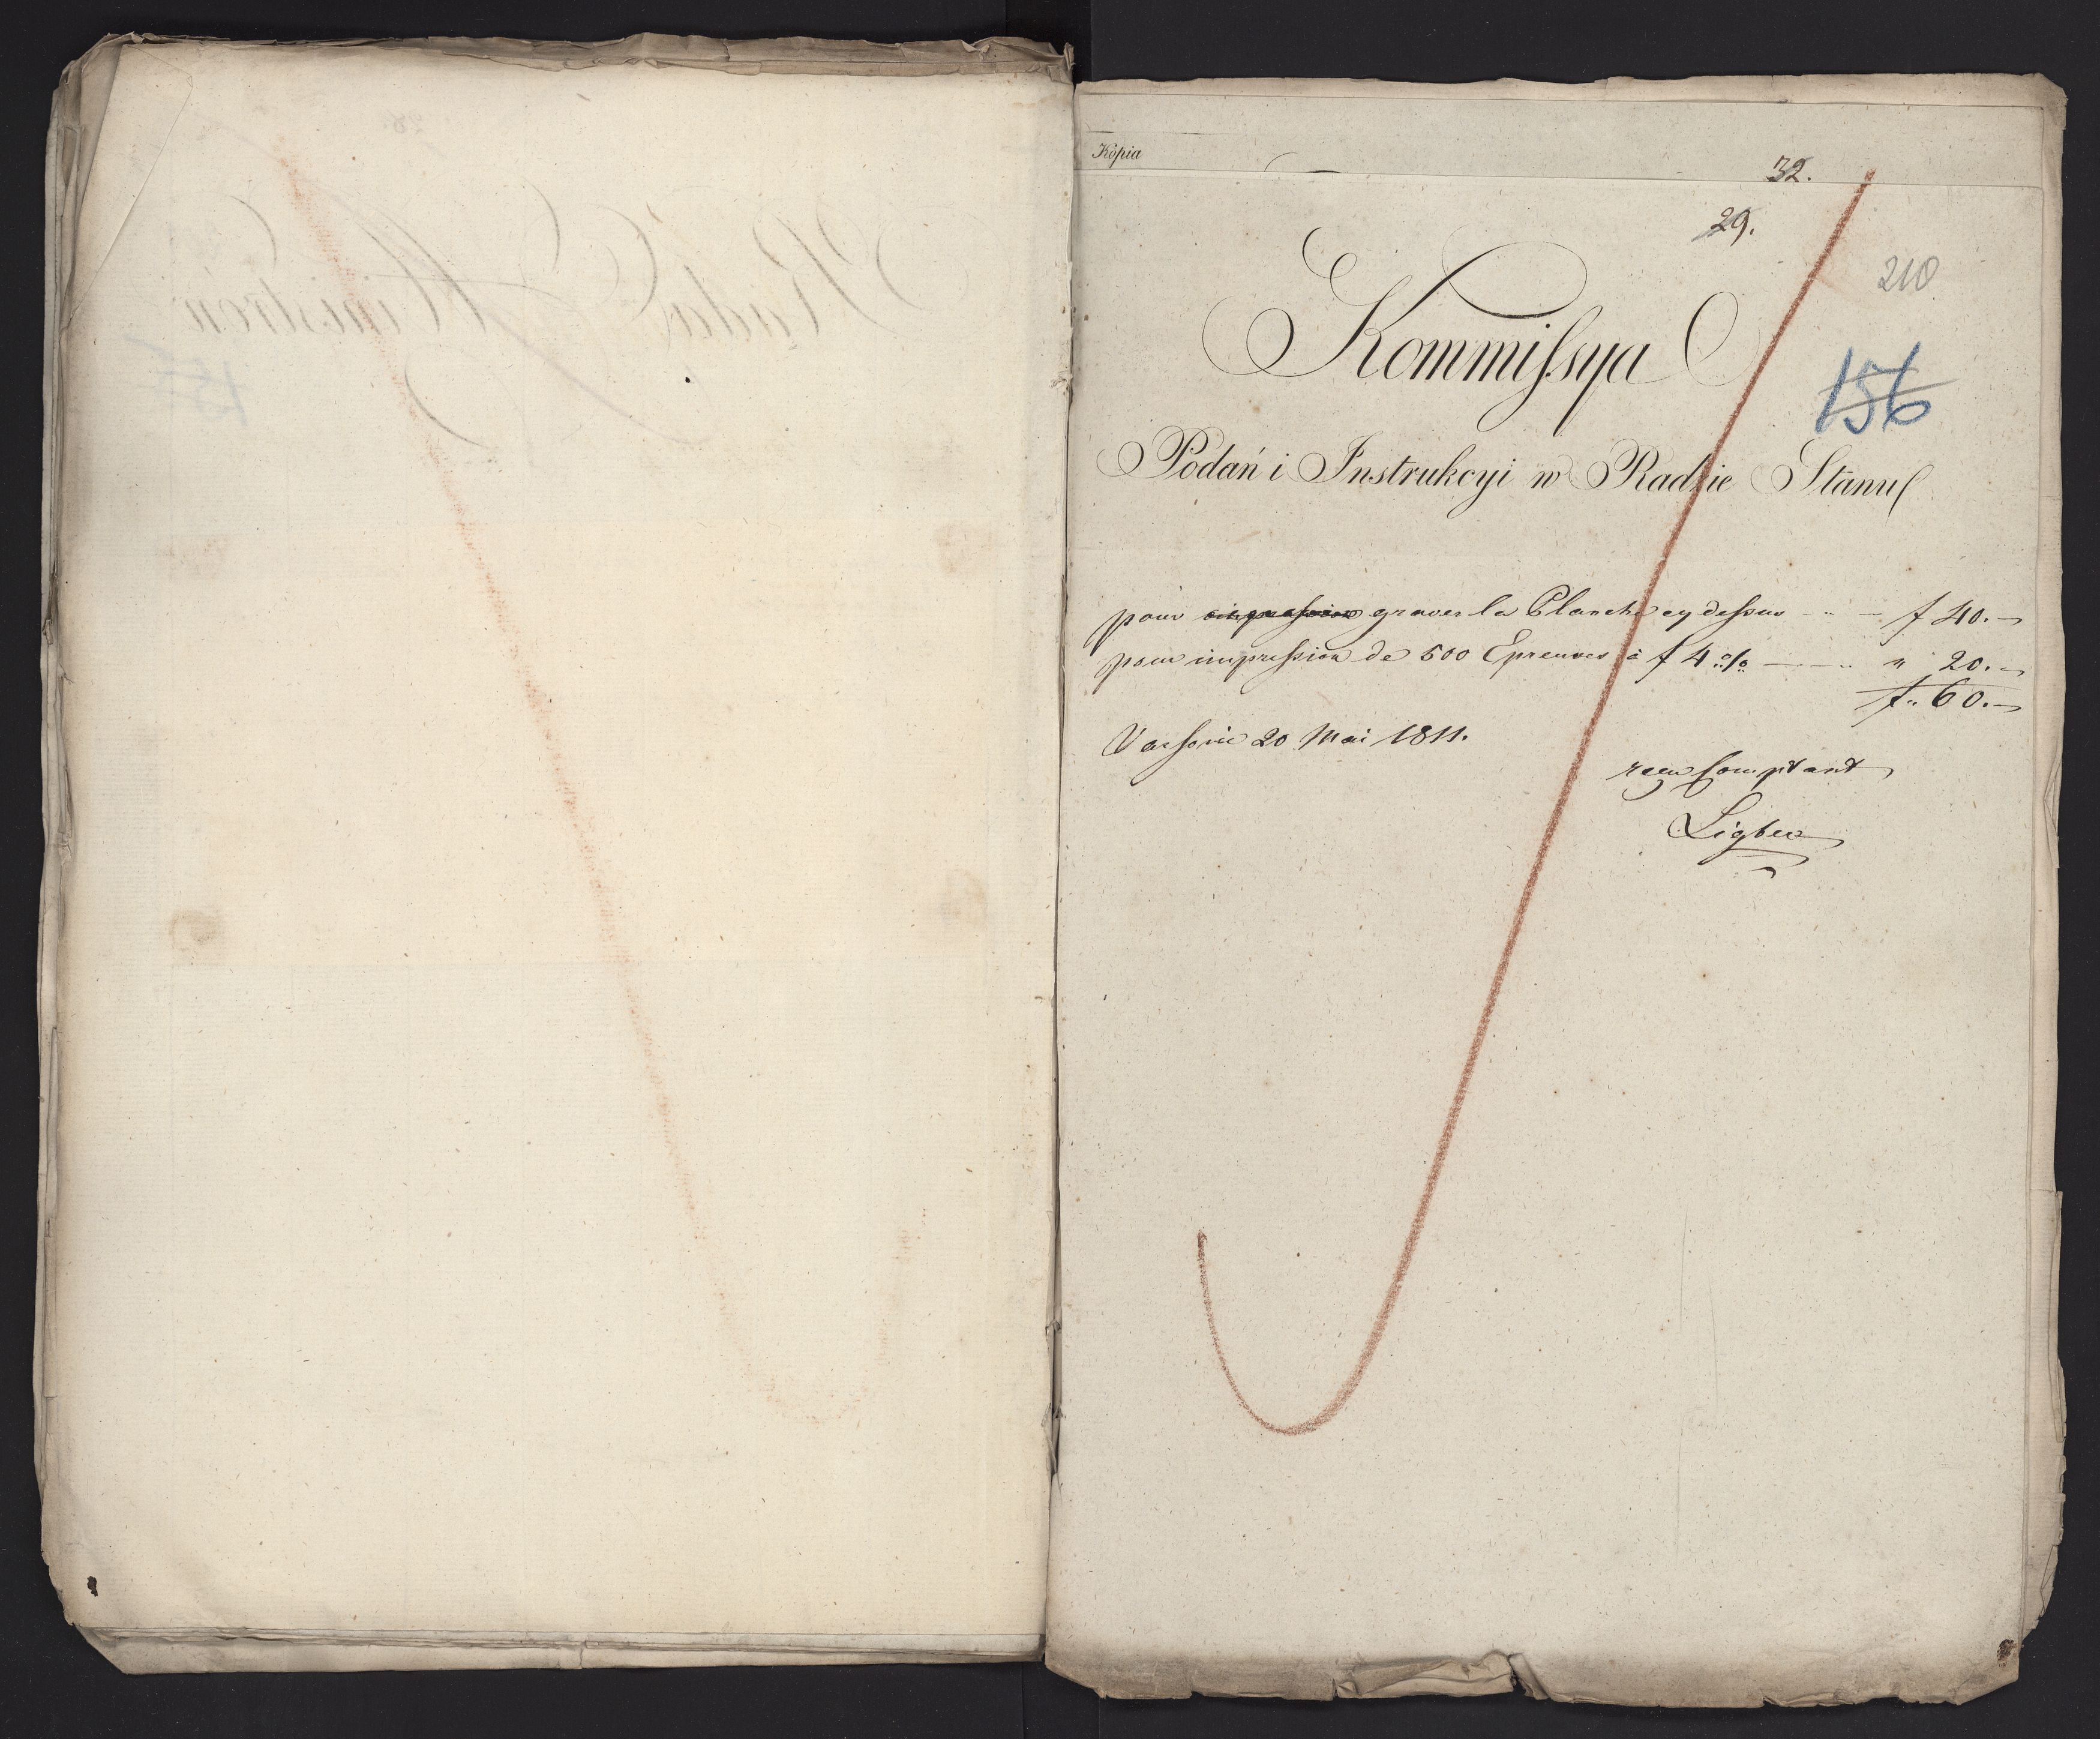 Kopia
32.
29.
210
Kommiſsya
156
Podań i Instrukcyi w Radzie Stanu
pour impression graver la Planche cy dessus - " - f 40.-
pour impression de 500 Epreuves à f 4 % - " - " 20.-
f. 60.-
Varsovie 20 Mai 1811.
reçu Comptant
Ligber